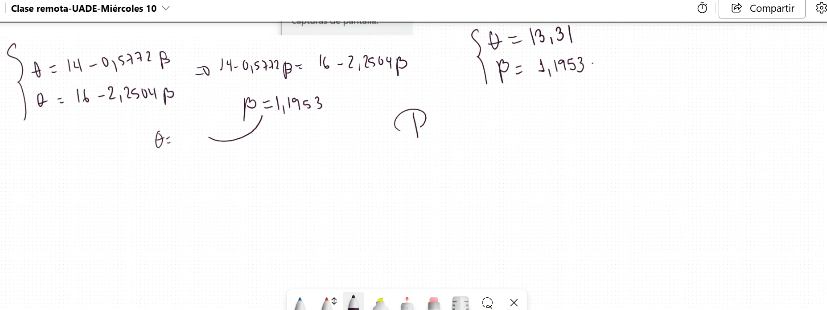 Clase remota-UADE-Miércoles 10
Compartir
capturas de pantalla.
θ = 14 - 0,5772 β
θ = 16 - 2,2504 β
⇒ 14 - 0,5772 β = 16 - 2,2504 β
β = 1,1953
θ =
θ = 13,31
β = 1,1953.
P